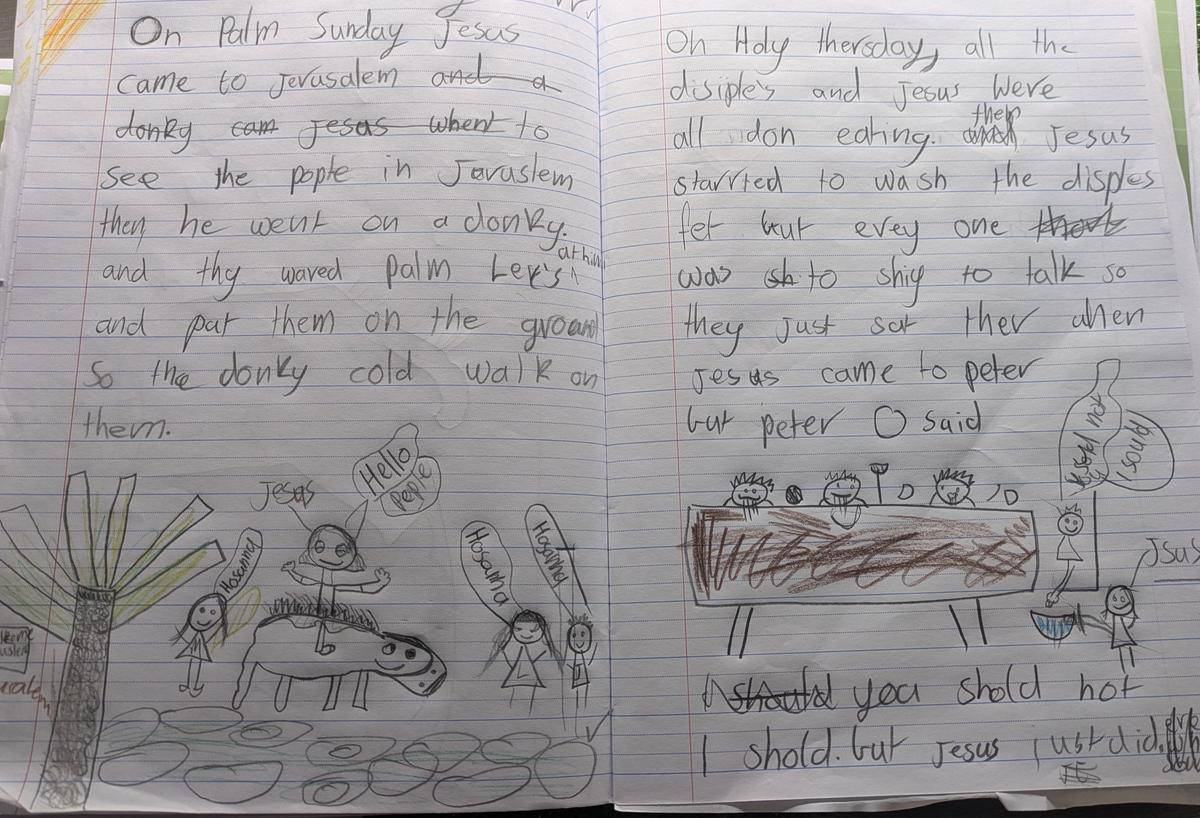 On Palm Sunday Jesus
came to Jerusalem and a
donky cam jesus whent to
see the pople in Jeruslem
then he went on a donky.
and thy waved palm Lev's at him
and pat them on the ground
So the donky cold walk on
them.
Jesus
Hello
peple
Hosanna
Hosanna
Hosanna
On Holy thersday, all the
disiple's and Jesus were
all don eating. then Jesus
starrted to wash the disples
fet but evrey one
was sh to shiy to talk so
they just sat ther when
jesus came to peter
but peter said
Jsus
should you shold not
I shold. but Jesus just did.